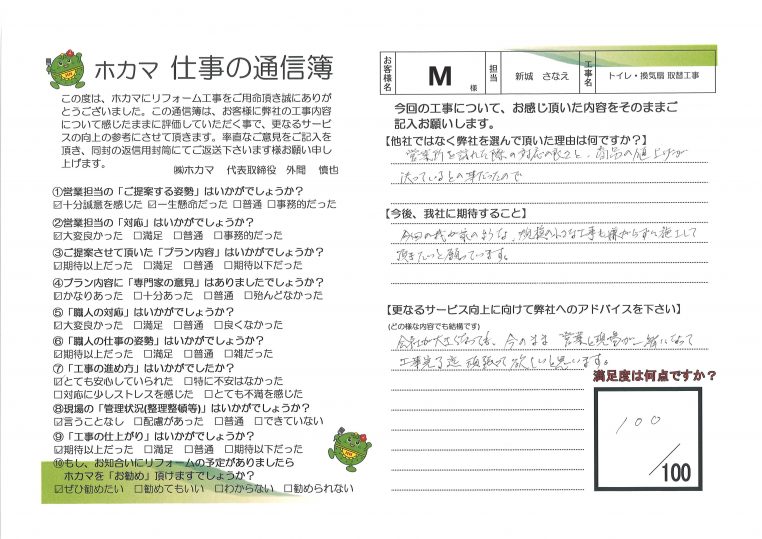 ホカマ 仕事の通信簿
この度は、ホカマにリフォーム工事をご用命頂き誠にありが
とうございました。この通信簿は、お客様に弊社の工事内容
について感じたままに評価していただく事で、更なるサービ
スの向上の参考にさせて頂きます。率直なご意見をご記入を
頂き、同封の返信用封筒にてご返送下さいます様お願い申し
上げます。
㈱ホカマ 代表取締役 外間 慎也
①営業担当の「ご提案する姿勢」はいかがでしょうか?
☑十分誠意を感じた ☑一生懸命だった □普通 □事務的だった
②営業担当の「対応」はいかがでしょうか?
☑大変良かった □満足 □普通 □事務的だった
③ご提案させて頂いた「プラン内容」はいかがでしょうか?
☑期待以上だった □満足 □普通 □期待以下だった
④プラン内容に「専門家の意見」はありましたでしょうか?
☑かなりあった □十分あった □普通 □殆んどなかった
⑤「職人の対応」はいかがでしょうか?
☑大変良かった □満足 □普通 □良くなかった
⑥「職人の仕事の姿勢」はいかがでしょうか?
☑期待以上だった □満足 □普通 □雑だった
⑦「工事の進め方」はいかがでしたか?
☑とても安心していられた □特に不安はなかった
□対応に少しストレスを感じた □とても不満を感じた
⑧現場の「管理状況(整理整頓等)」はいかがでしょうか?
☑言うことなし □配慮があった □普通 □できていない
⑨「工事の仕上がり」はいかがでしょうか?
☑期待以上だった □満足 □普通 □期待以下だった
⑩もし、お知合いにリフォームの予定がありましたら
ホカマを「お勧め」頂けますでしょうか?
☑ぜひ勧めたい □勧めてもいい □わからない □勧められない
お客様名 M 様 担当 新城 さなえ 工事名 トイレ・換気扇 取替工事
今回の工事について、お感じ頂いた内容をそのままご
記入お願いします。
【他社ではなく弊社を選んで頂いた理由は何ですか?】
営業所を訪れた際の対応の良さと、商品の値上げが
決っているとの事だったので
【今後、我社に期待すること】
今回の我が家のような、規模の小さな工事も嫌がらずに施工して
頂きたいと願っています。
【更なるサービス向上に向けて弊社へのアドバイスを下さい】
(どの様な内容でも結構です)
会社が大きくなっても、今のまま 営業と現場が一緒になって
工事完了迄 頑張って欲しいと思います。
満足度は何点ですか?
100
/100